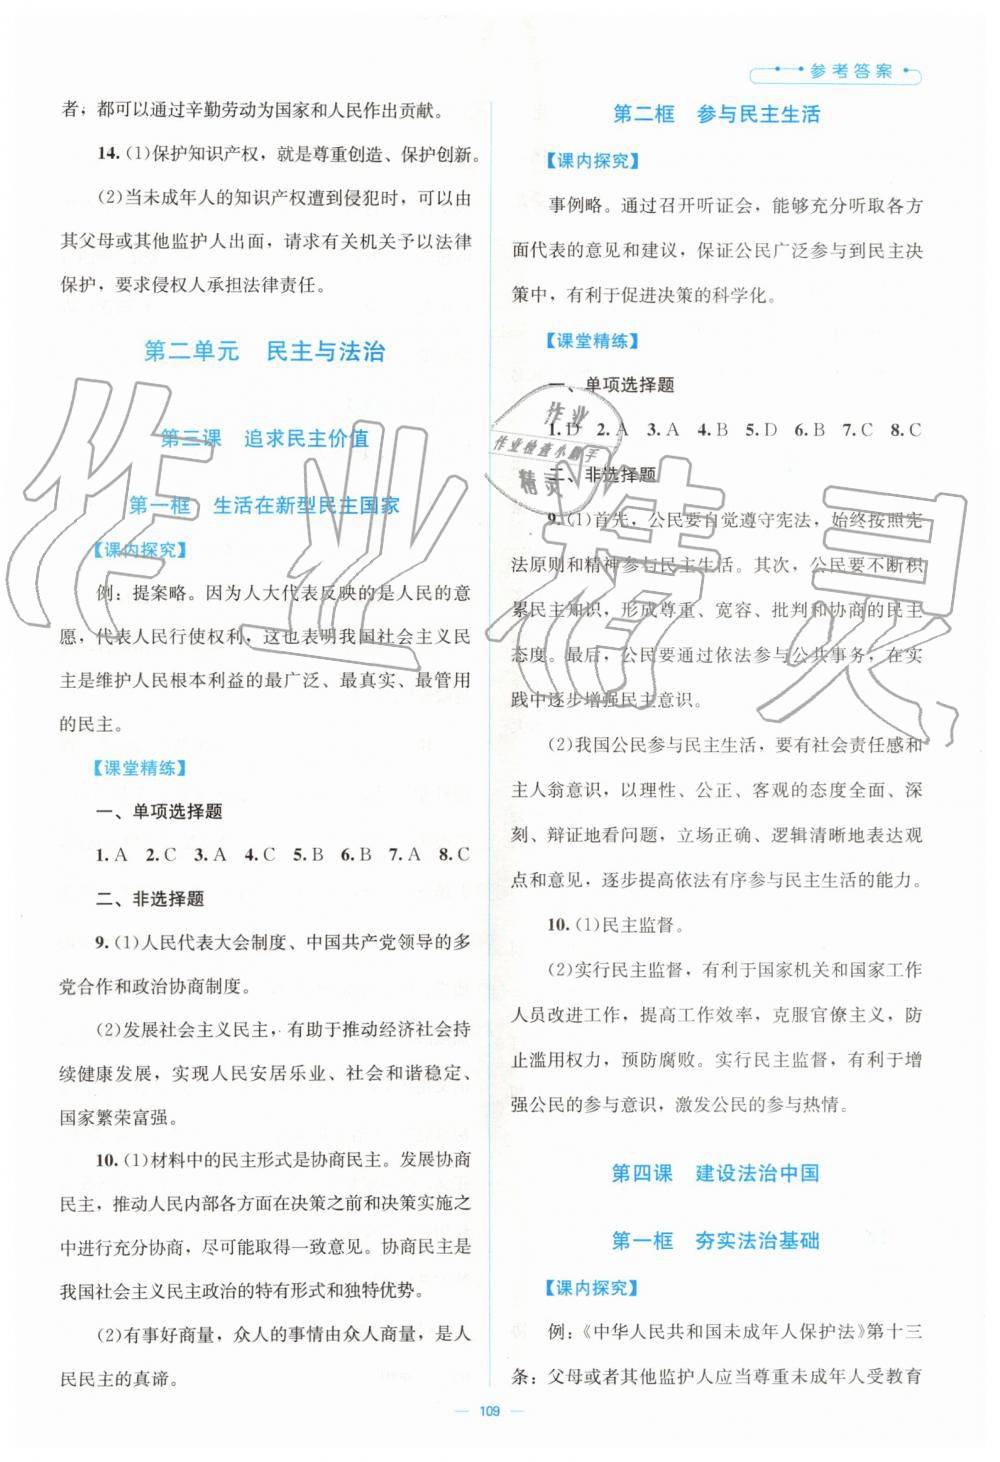 参考答案
者,都可以通过辛勤劳动为国家和人民作出贡献。
14.(1)保护知识产权,就是尊重创造、保护创新。
(2)当未成年人的知识产权遭到侵犯时,可以由
其父母或其他监护人出面,请求有关机关予以法律
保护,要求侵权人承担法律责任。
第二单元 民主与法治
第三课 追求民主价值
第一框 生活在新型民主国家
【课内探究】
例:提案略。因为人大代表反映的是人民的意
愿,代表人民行使权利,这也表明我国社会主义民
主是维护人民根本利益的最广泛、最真实、最管用
的民主。
【课堂精练】
一、单项选择题
1.A 2.C 3.A 4.C 5.B 6.B 7.A 8.C
二、非选择题
9.(1)人民代表大会制度、中国共产党领导的多
党合作和政治协商制度。
(2)发展社会主义民主,有助于推动经济社会持
续健康发展,实现人民安居乐业、社会和谐稳定、
国家繁荣富强。
10.(1)材料中的民主形式是协商民主。发展协商
民主,推动人民内部各方面在决策之前和决策实施之
中进行充分协商,尽可能取得一致意见。协商民主是
我国社会主义民主政治的特有形式和独特优势。
(2)有事好商量,众人的事情由众人商量,是人
民民主的真谛。
第二框 参与民主生活
【课内探究】
事例略。通过召开听证会,能够充分听取各方
面代表的意见和建议,保证公民广泛参与到民主决
策中,有利于促进决策的科学化。
【课堂精练】
一、单项选择题
1.D 2.A 3.A 4.B 5.D 6.B 7.C 8.C
二、非选择题
9.(1)首先,公民要自觉遵守宪法,始终按照宪
法原则和精神参与民主生活。其次,公民要不断积
累民主知识,形成尊重、宽容、批判和协商的民主
态度。最后,公民要通过依法参与公共事务,在实
践中逐步增强民主意识。
(2)我国公民参与民主生活,要有社会责任感和
主人翁意识,以理性、公正、客观的态度全面、深
刻、辩证地看问题,立场正确、逻辑清晰地表达观
点和意见,逐步提高依法有序参与民主生活的能力。
10.(1)民主监督。
(2)实行民主监督,有利于国家机关和国家工作
人员改进工作,提高工作效率,克服官僚主义,防
止滥用权力,预防腐败。实行民主监督,有利于增
强公民的参与意识,激发公民的参与热情。
第四课 建设法治中国
第一框 夯实法治基础
【课内探究】
例:《中华人民共和国未成年人保护法》第十三
条:父母或者其他监护人应当尊重未成年人受教育
109
作业精灵
作业
作业检查小助手
精灵